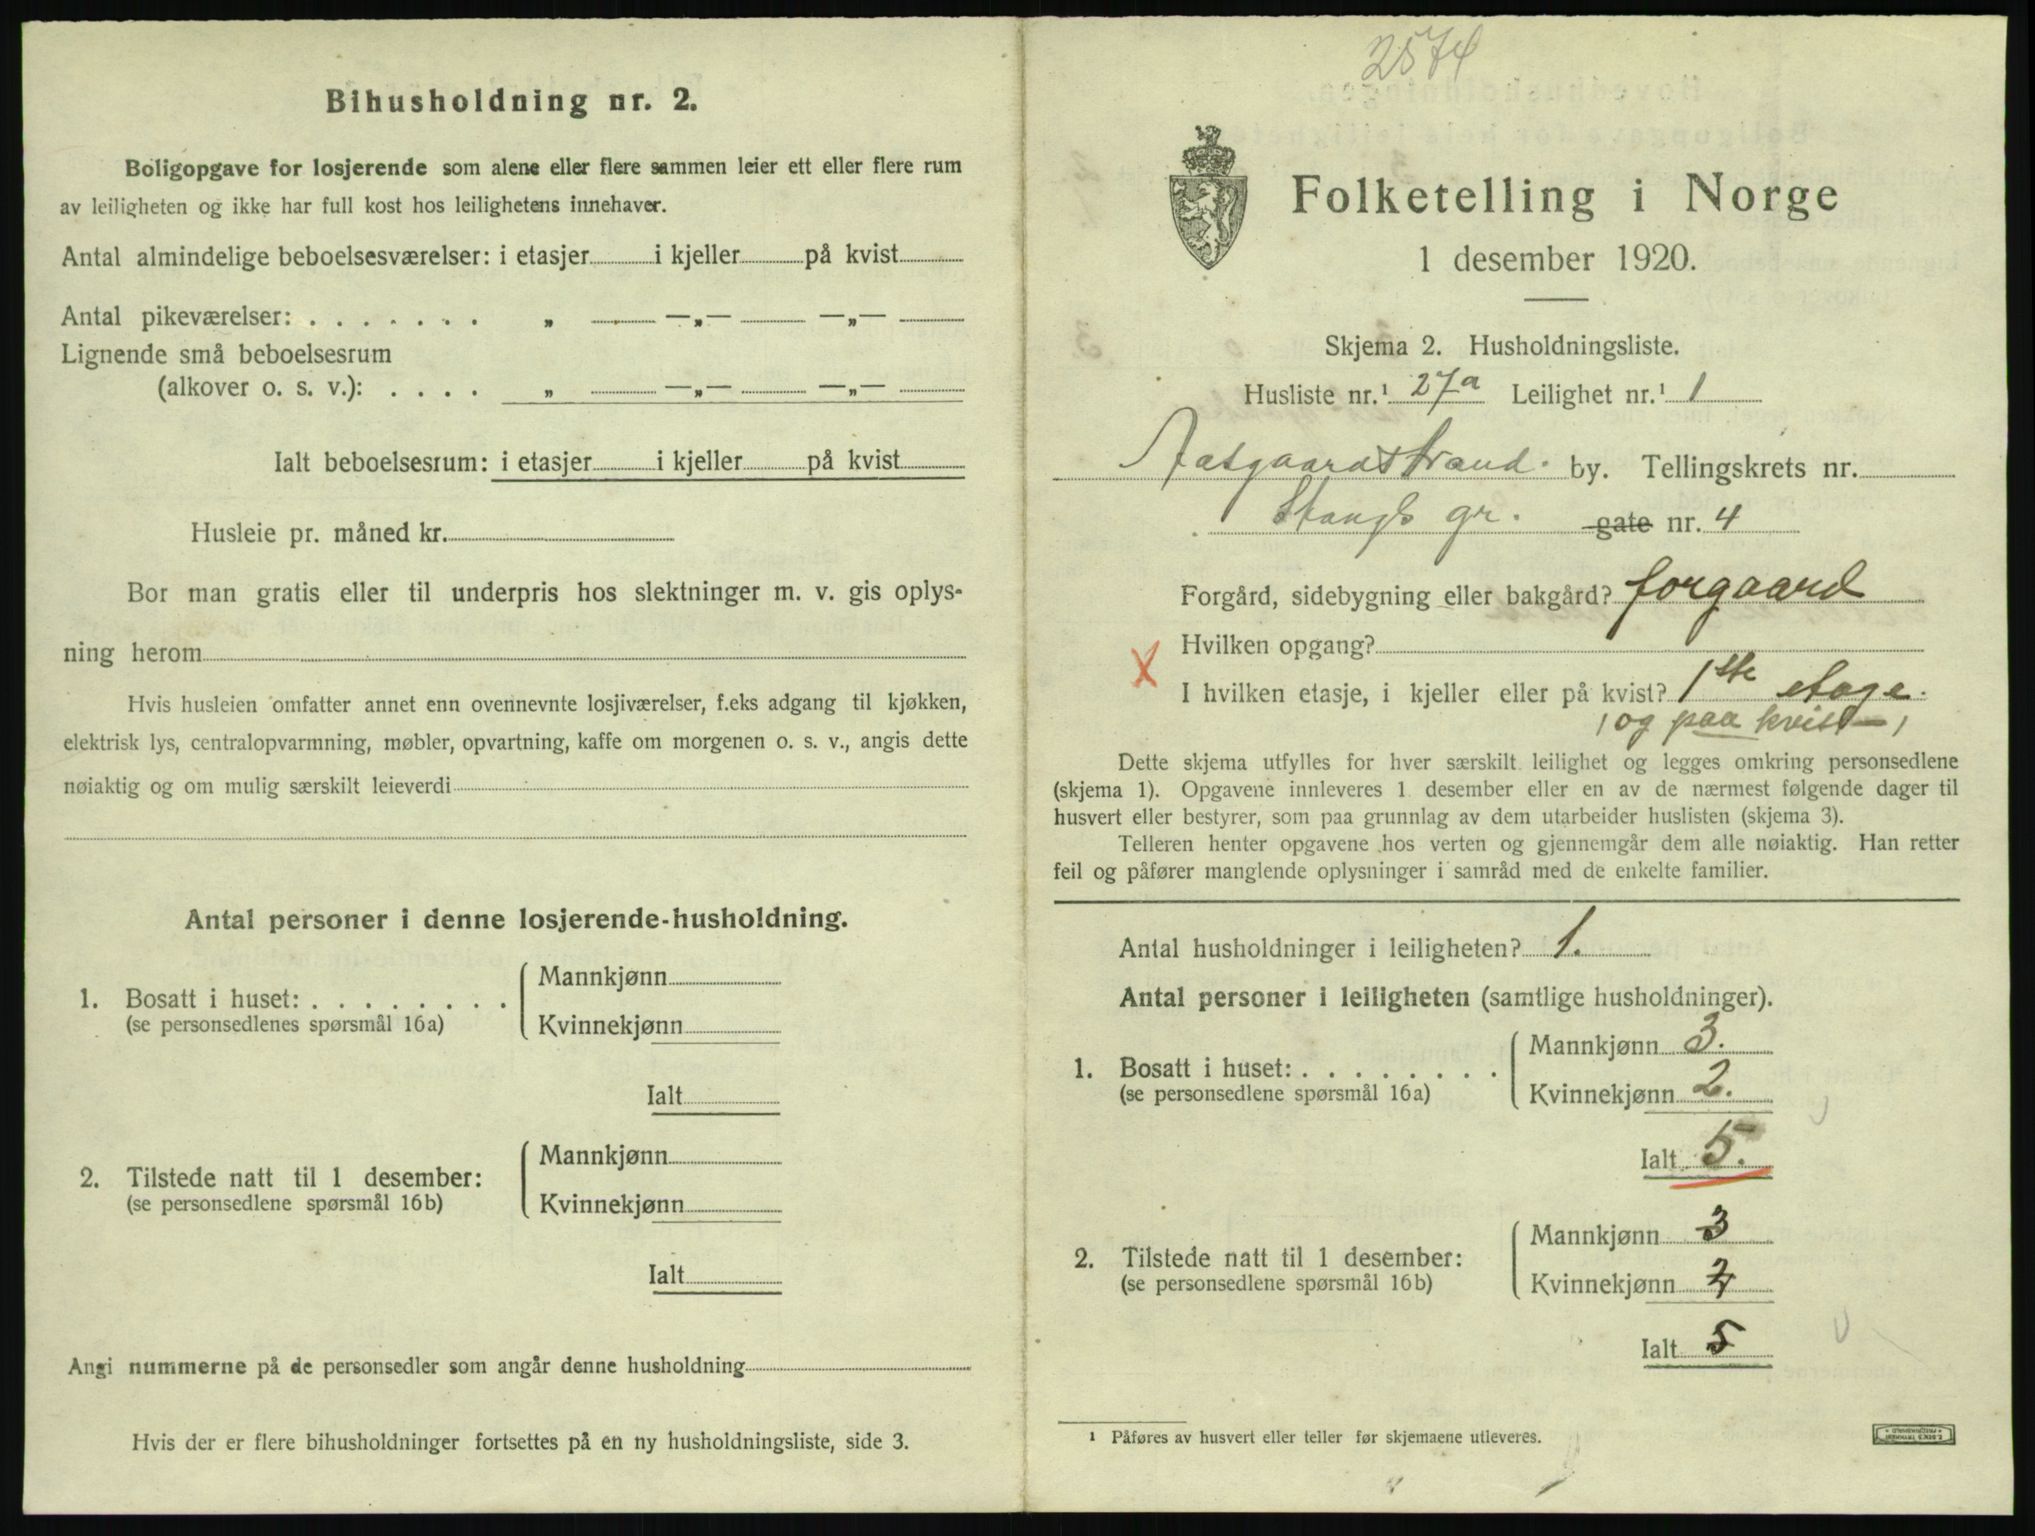 Bihusholdning nr. 2.
Boligopgave for losjerende som alene eller flere sammen leier ett eller flere rum
av leiligheten og ikke har full kost hos leilighetens innehaver.
Antal almindelige beboelsesværelser: i etasjer i kjeller på kvist
Antal pikeværelser: . . . . . . . „ —„— —„—
Lignende små beboelsesrum
(alkover o. s. v.): . . . . „ —„— —„—
Ialt beboelsesrum: i etasjer i kjeller på kvist
Husleie pr. måned kr.
Bor man gratis eller til underpris hos slektninger m. v. gis oplys-
ning herom
Hvis husleien omfatter annet enn ovennevnte losjiværelser, f.eks adgang til kjøkken,
elektrisk lys, centralopvarmning, møbler, opvartning, kaffe om morgenen o. s. v., angis dette
nøiaktig og om mulig særskilt leieverdi
Antal personer i denne losjerende-husholdning.
1. Bosatt i huset: . . . . . . . .
(se personsedlenes spørsmål 16a)
Mannkjønn
Kvinnekjønn
Ialt
2. Tilstede natt til 1 desember:
(se personsedlene spørsmål 16b)
Mannkjønn
Kvinnekjønn
Ialt
Angi nummerne på de personsedler som angår denne husholdning
Hvis der er flere bihusholdninger fortsettes på en ny husholdningsliste, side 3.
2574
Folketelling i Norge
1 desember 1920.
Skjema 2. Husholdningsliste.
Husliste nr.¹ 27a Leilighet nr.¹ 1
Aasgaardstrand. by. Tellingskrets nr.
Stangs gr. gate nr. 4
Forgård, sidebygning eller bakgård? forgaard
Hvilken opgang?
X
I hvilken etasje, i kjeller eller på kvist? 1ste etage.
(og paa kvist)
Dette skjema utfylles for hver særskilt leilighet og legges omkring personsedlene
(skjema 1). Opgavene innleveres 1 desember eller en av de nærmest følgende dager til
husvert eller bestyrer, som paa grunnlag av dem utarbeider huslisten (skjema 3).
Telleren henter opgavene hos verten og gjennemgår dem alle nøiaktig. Han retter
feil og påfører manglende oplysninger i samråd med de enkelte familier.
Antal husholdninger i leiligheten? 1.
Antal personer i leiligheten (samtlige husholdninger).
1. Bosatt i huset: . . . . . . . .
(se personsedlene spørsmål 16a)
Mannkjønn 3.
Kvinnekjønn 2.
Ialt 5.
2. Tilstede natt til 1 desember:
(se personsedlene spørsmål 16b)
Mannkjønn 3
Kvinnekjønn 2
Ialt 5
¹ Påføres av husvert eller teller før skjemaene utleveres.